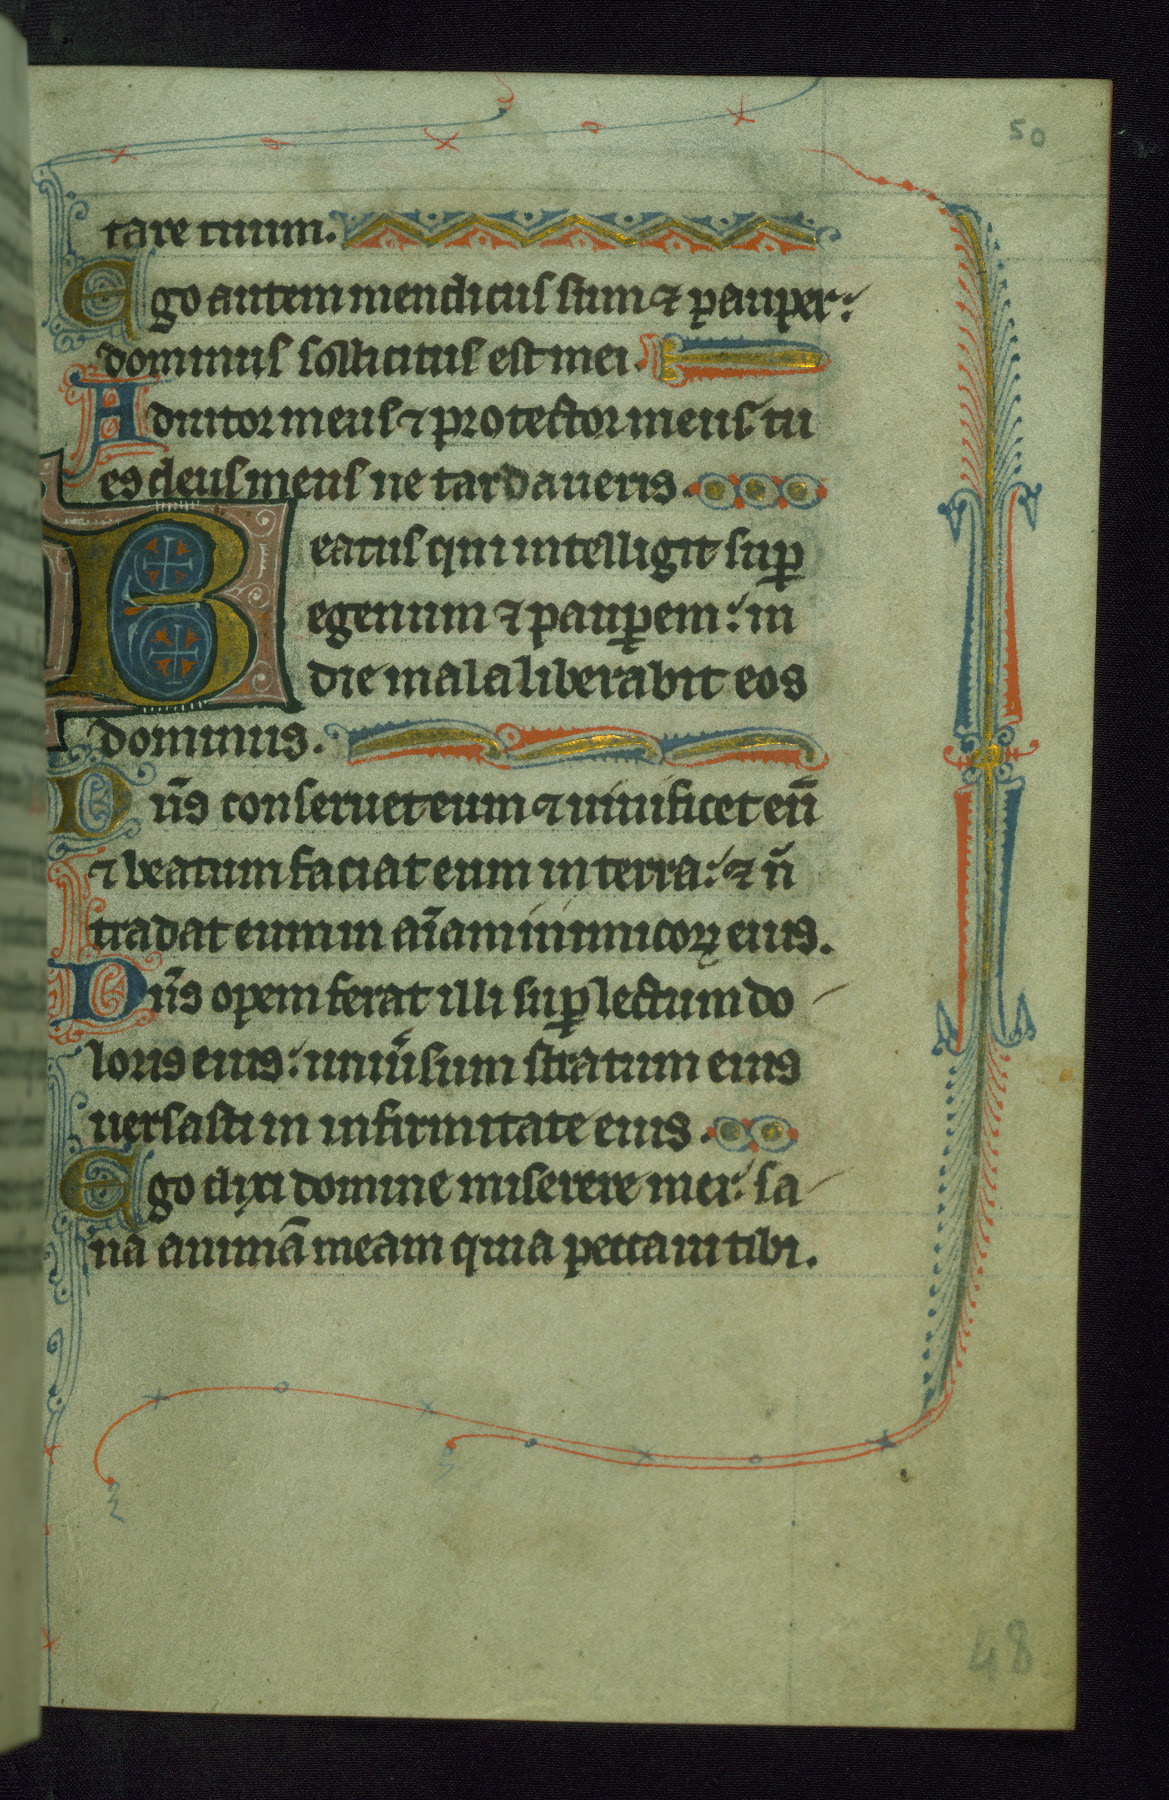 50
tare tuum.
Ego autem mendicus sum ⁊ pauper:
dominus sollicitus est mei.
Adiutor meus ⁊ protector meus tu
es deus meus ne tardaueris.
Beatus qui intelligit suꝑ
egenum ⁊ pauꝑem: in
die mala liberabit eos
dominus.
Dn̄s conseruet eum ⁊ uiuificet eū
⁊ beatum faciat eum in terra: ⁊ ñ
tradat eum in aīam inimicoꝝ eius.
Dn̄s opem ferat illi suꝑ lectum do
loris eius: uniũsum stratum eius
uersasti in infirmitate eius.
Ego dixi domine miserere mei: sa
na animā meam quia peccaui tibi.
48